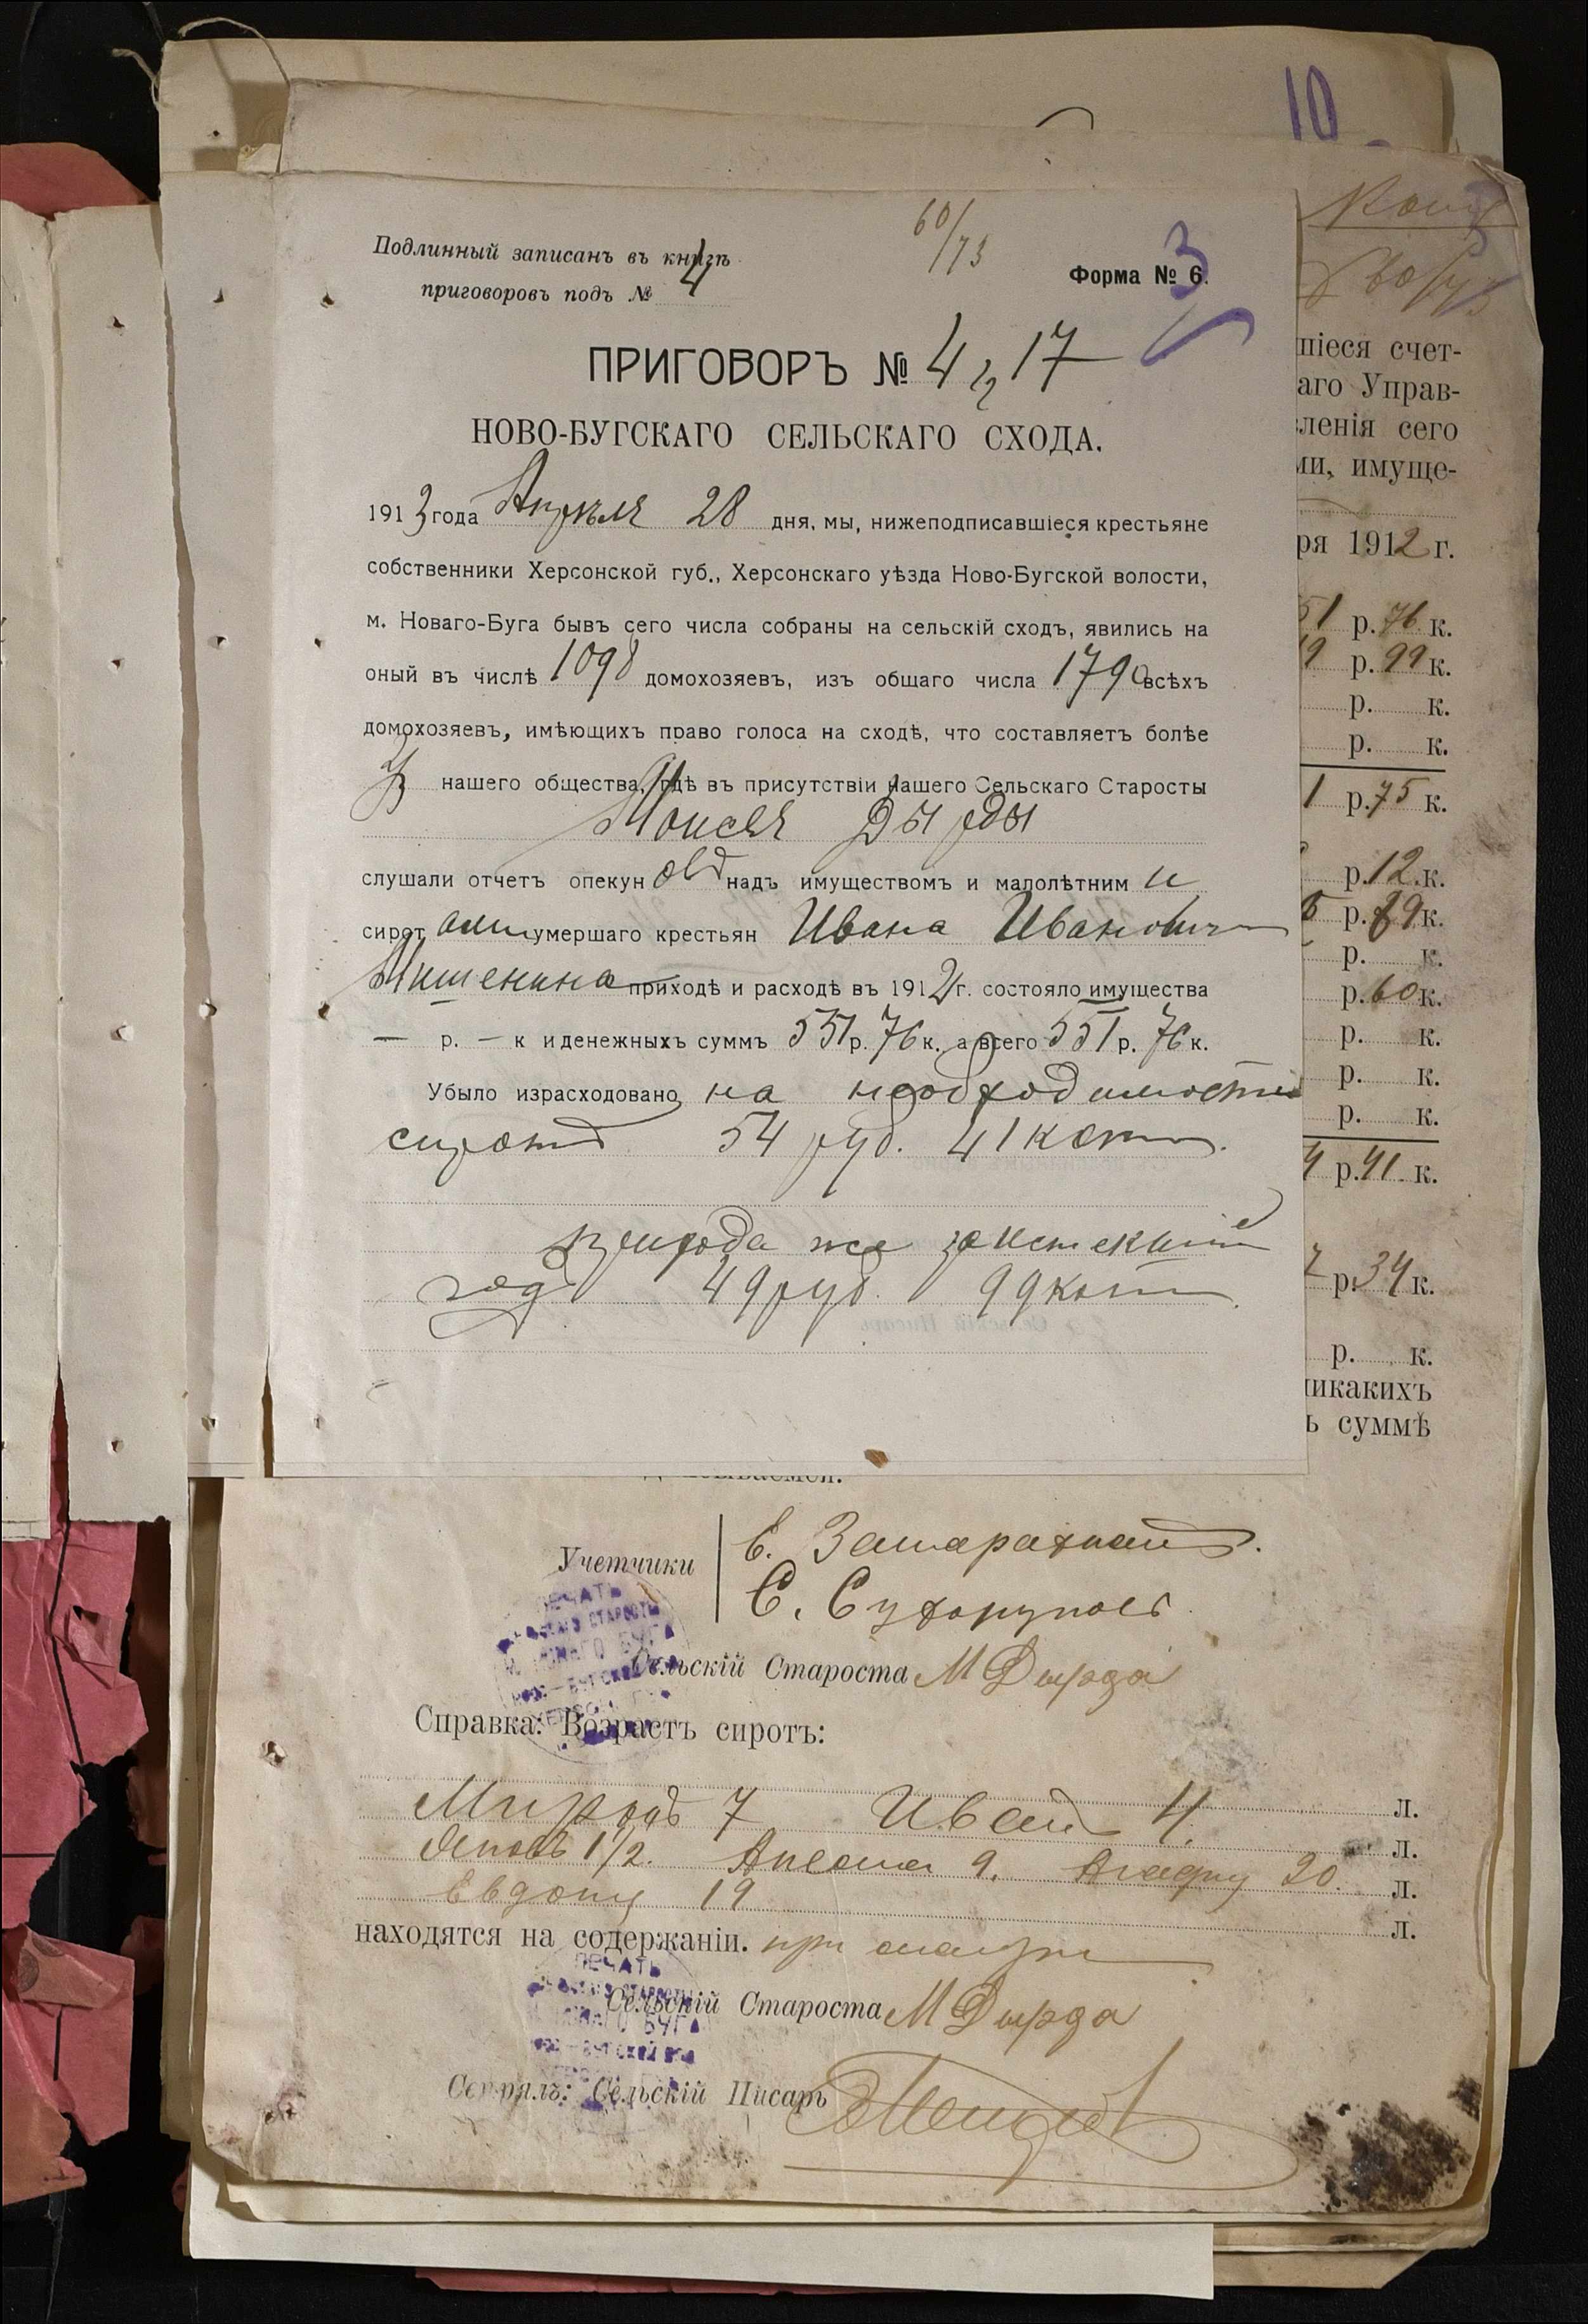 10
60/73
3
Подлинный записанъ въ книгѣ
приговоровъ подъ № 4
Форма № 6.
ПРИГОВОРЪ № 4 17
НОВО-БУГСКАГО СЕЛЬСКАГО СХОДА.
1913 года Апрѣля 28 дня, мы, нижеподписавшіеся крестьяне
собственники Херсонской губ., Херсонскаго уѣзда Ново-Бугской волости,
м. Новаго-Буга бывъ сего числа собраны на сельскій сходъ, явились на
оный въ числѣ 1098 домохозяевъ, изъ общаго числа 1790 всѣхъ
домохозяевъ, имѣющихъ право голоса на сходѣ, что составляетъ болѣе
нашего общества, гдѣ въ присутствіи нашего Сельскаго Старосты
Моисея Дырды
слушали отчетъ опекуновъ надъ имуществомъ и малолѣтними
сиротами умершаго крестьян Ивана Ивановича
Мишенина приходѣ и расходѣ въ 1912 г. состояло имущества
— р. — к и денежныхъ суммъ 551 р. 76 к. а всего 551 р. 76 к.
Убыло израсходовано на необходимости
сиротъ 54 руб. 41 коп.
прихода же за истекшій
годъ 49 руб. 99 коп.
60/73
шіеся счет-
аго Управ-
вленія сего
ми, имуще-
ря 1912 г.
51 р. 76 к.
49 р. 99 к.
р. к.
р. к.
1 р. 75 к.
р. 12 к.
р. 89 к.
р. к.
р. 60 к.
р. к.
р. к.
р. к.
4 р. 41 к.
р. 34 к.
р. к.
никакихъ
ъ суммѣ
Учетчики
Е. Зашарахнай
С. Сухоруковъ
Сельскій Староста М Дырда
Справка: Возрастъ сиротъ:
7 Иванъ 4. л.
Яковъ 1½. 9. 20. л.
19 л.
л.
находятся на содержаніи. при матери
Сельскій Староста М Дырда
Сельскій Писарь
ПЕЧАТЬ
СТАРОСТЫ
БУГА
ПЕЧАТЬ
БУГА